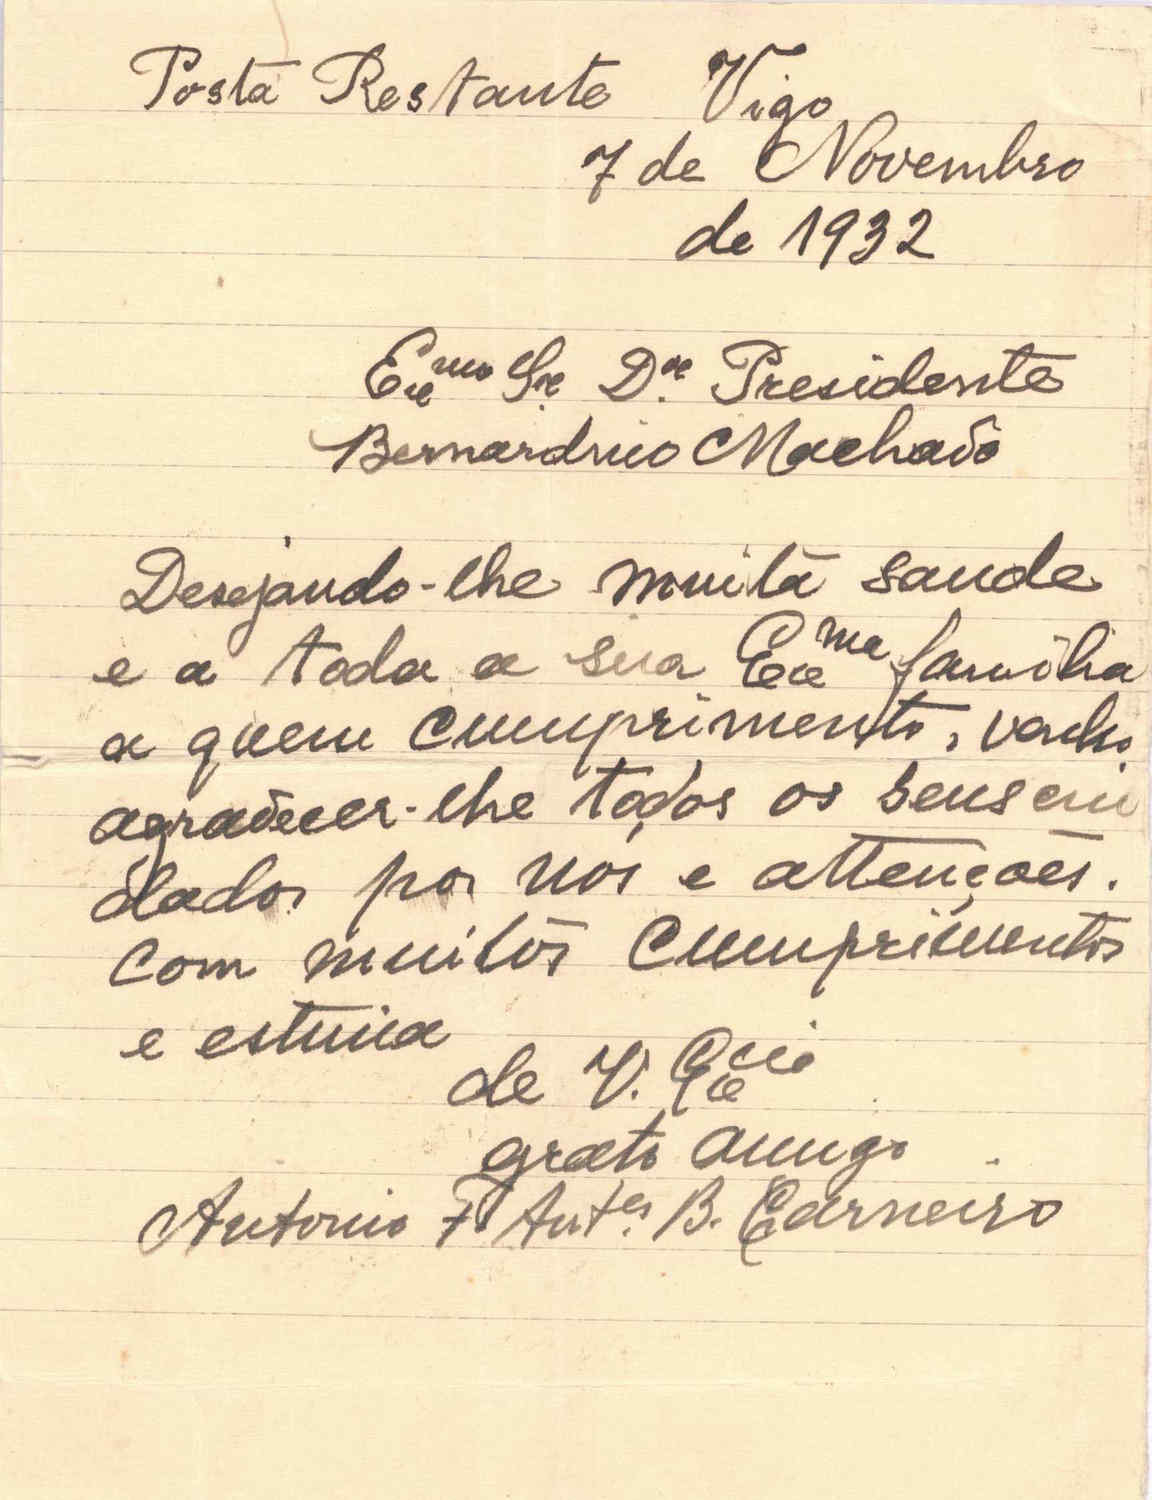 Posta Restante Vigo
7 de Novembro
de 1932
Exmo Sr. Dr. Presidente
Bernardino Machado
Desejando-lhe muita saude
e a toda a sua Exma familia
a quem cumprimento, venho
agradecer-lhe todos os seus cui
dados por nós e attenções.
com muitos cumprimentos
e estima
de V. Excia
grato amigo
Antonio F Antes. B. Carneiro